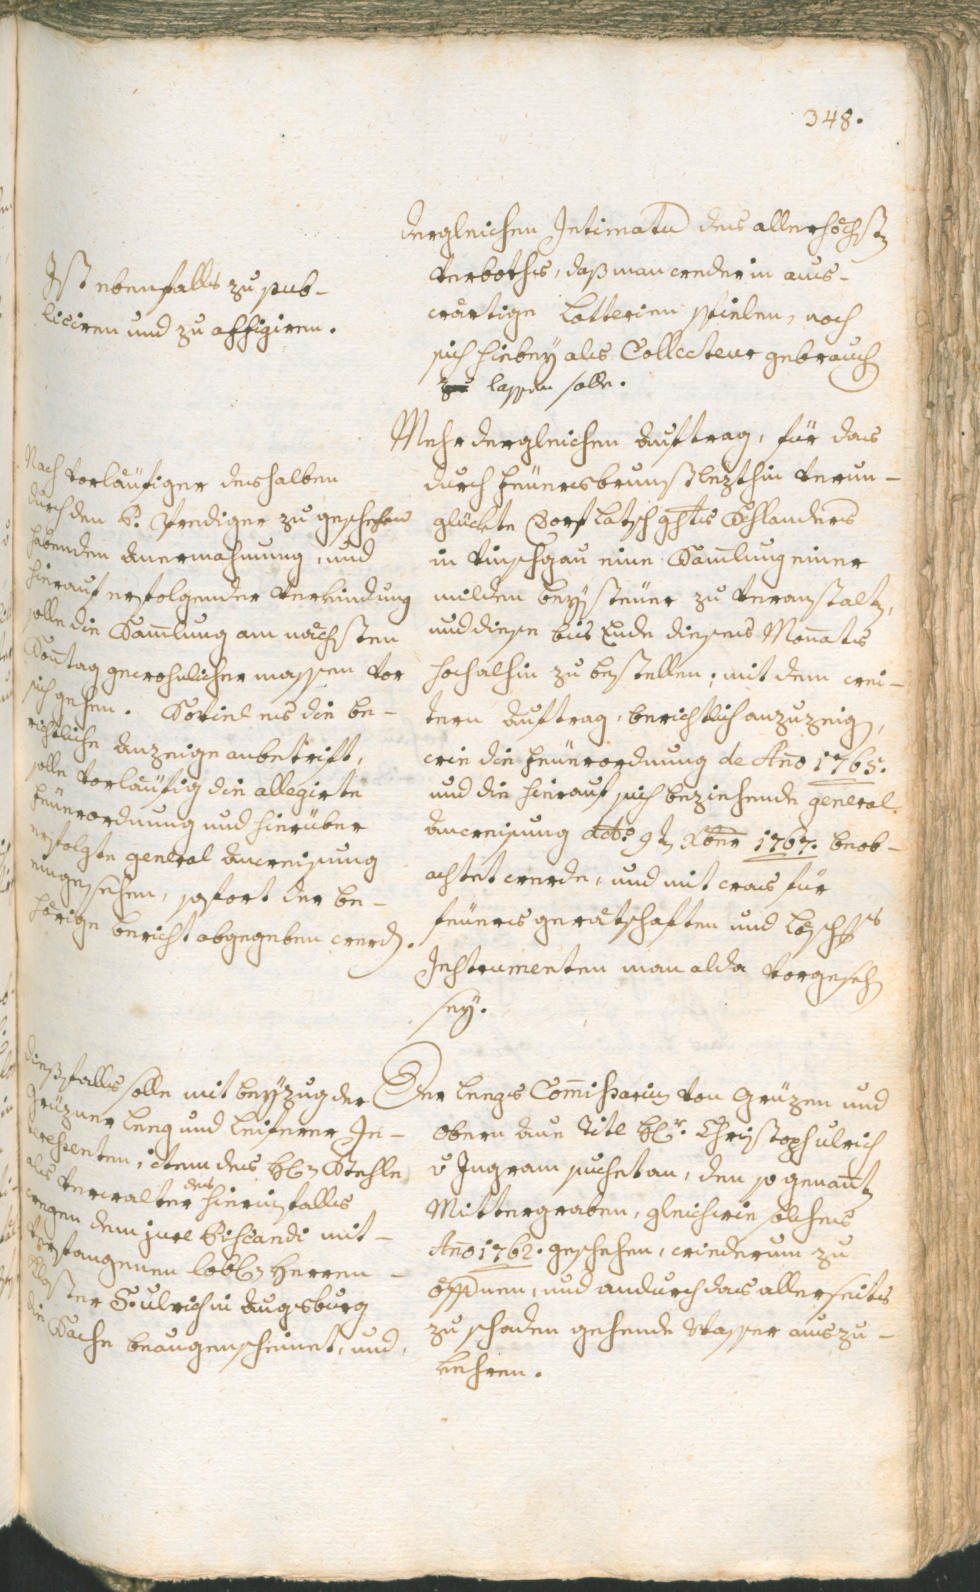 348.
Ist ebenfalls zu pub-
liciren und zu affigiren.
dergleichen Intimatū des allerhöchst
Verboths, daß man weder in aus-
wärtige Lotterien spielen, noch
sich hiebey als Collecteur gebrauch
lassen solle.
Nach vorläufiger deshalben
durch den P. Prediger zu geschehen
habenden Anermahnung, und
hierauf erfolgender Verkündung
solle die Samlung am nächsten
Sontag gewohnlicher massen vor
sich gehen. Soviel es die be-
richtliche Anzeige anbetrift,
solle vorläufig die allegirte
Feüerordnung und hierüber
erfolgte general Anweisung
eingesehen, sofort der be-
hörige bericht abgegeben werdn.
Mehr dergleichen Auftrag, für das
durch Feüersbrunst lezthin verun-
glückte Dorf Latsch ghts Schlanders
in Vinschgau eine Samlung einer
milden beysteüer zu veranstaltn,
und diese bis Ende dieses Monats
hochalhin zu bestellen; mit dem wei-
tern Auftrag, berichtlich anzuzeign,
wie die Feüerordnung de Año 1765.
und die hierauf sich beziehende general
Anweisung ddto. 9tn Xber 1767. beob-
achtet werde, und mit was für
feüersgerätschaften und lösch
Instrumenten man alda vorgesehn
sey.
dießfalls solle mit beyzug der
Grüzner leeg und leiferer In-
teressenten, item des H. Stehle
als verwalter des hierinfalls
wegen dem jure Piscandi mit-
verfangenen lobl. Herren-
Closter S. Ulrich in Augsburg
die Sache beaugenscheinet, und
Der leegs Comissarius von Grüzen und
obern Aue Titl H. Christoph Ulrich
v Ingram suchet an, den so genantn
Mittergraben, gleichwie solches
Año 1762. geschehen, wiederum zu
öffnen, und andurch das allerseits
zu schaden gehende Wasser auszu-
kehren.